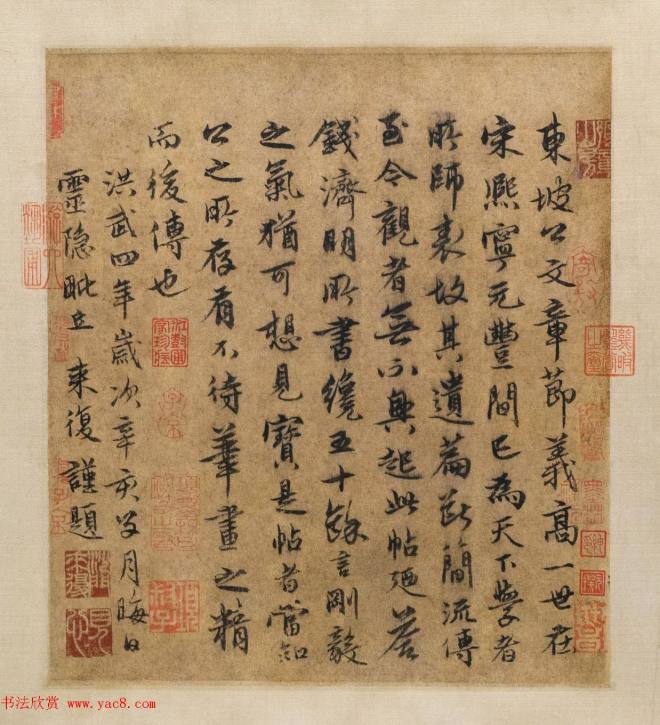 東坡公文章節義高一世在
宋熙寧元豐間已為天下學者
所師表故其遺篇斷簡流傳
至今觀者無不興起此帖廼荅
錢濟明所書纔五十餘言剛毅
之氣猶可想見寶是帖者當知
公之所存有不待筆畫之精
而後傳也
洪武四年歲次辛亥 月晦日
靈隐毗丘 来復謹題
书法欣赏 www.yac8.com